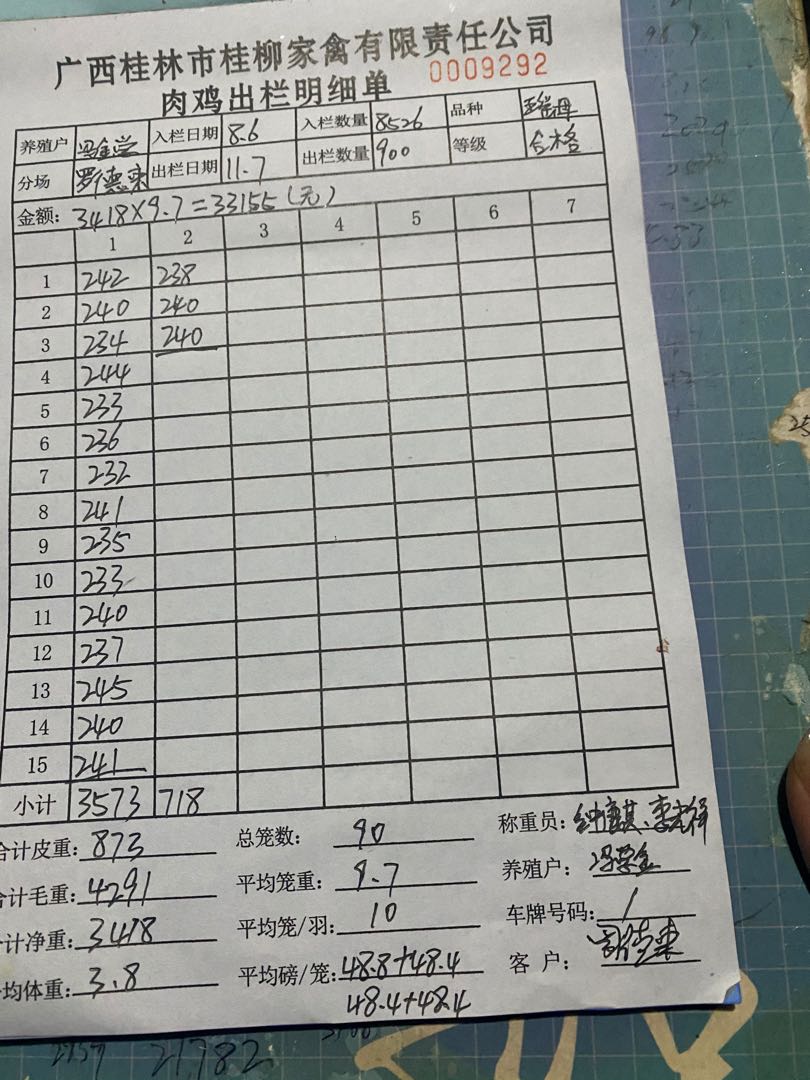 广西桂林市桂柳家禽有限责任公司
肉鸡出栏明细单 0009292
养殖户 入栏日期 8.6 入栏数量 8526 品种
分场 罗德来 出栏日期 11.7 出栏数量 900 等级 合格
金额: 3418×9.7=33155(元)
1 2 3 4 5 6 7
1 242 238
2 240 240
3 234 240
4 244
5 233
6 236
7 232
8 241
9 235
10 233
11 240
12 237
13 245
14 240
15 241
小计 3573 718
合计皮重: 873 总笼数: 90 称重员:
合计毛重: 4291 平均笼重: 9.7 养殖户: 冯学金
计净重: 3418 平均笼/羽: 10 车牌号码: 1
均体重: 3.8 平均磅/笼: 48.8+48.4 客户:
48.4+48.4
21782